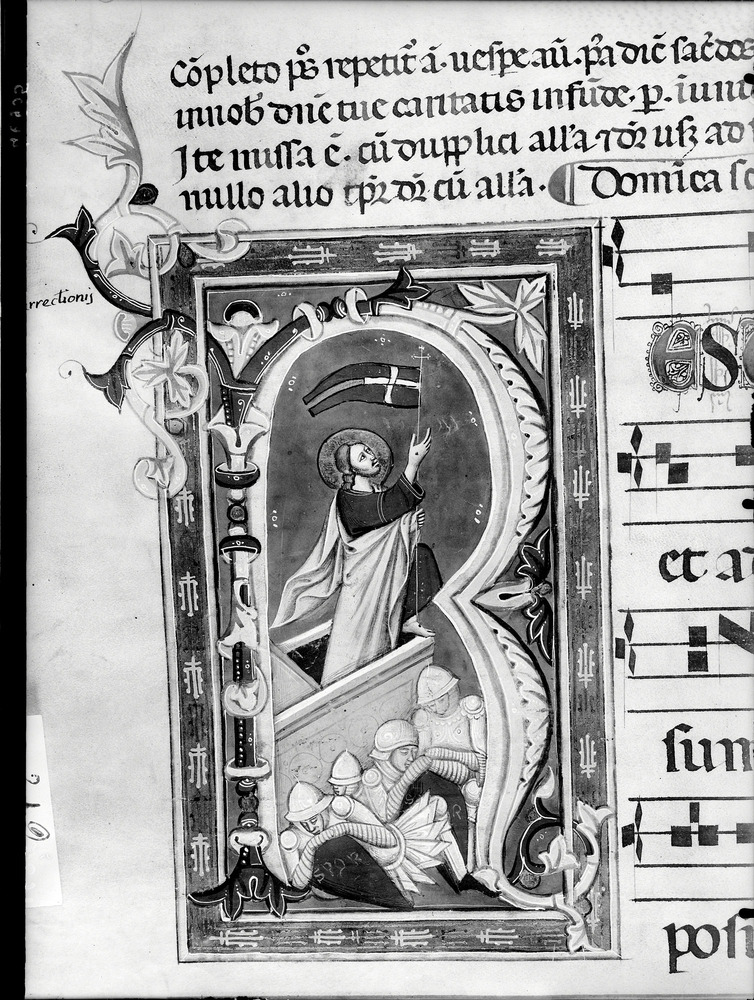 Cōpleto ps̄ repetit̄ ā· uespe aū· p̄a dic̄ sac̄dos
innob̄ dn̄e tue caritatis infūde· p̱·
Ite missa ē· cū dupplici all'a· ⁊ dr̄ usqȝ ad
nullo alio tp̄r dr̄ cū all'a· Dom̄ica
rrectionis
R
S
et a
sum
posu
SPQR